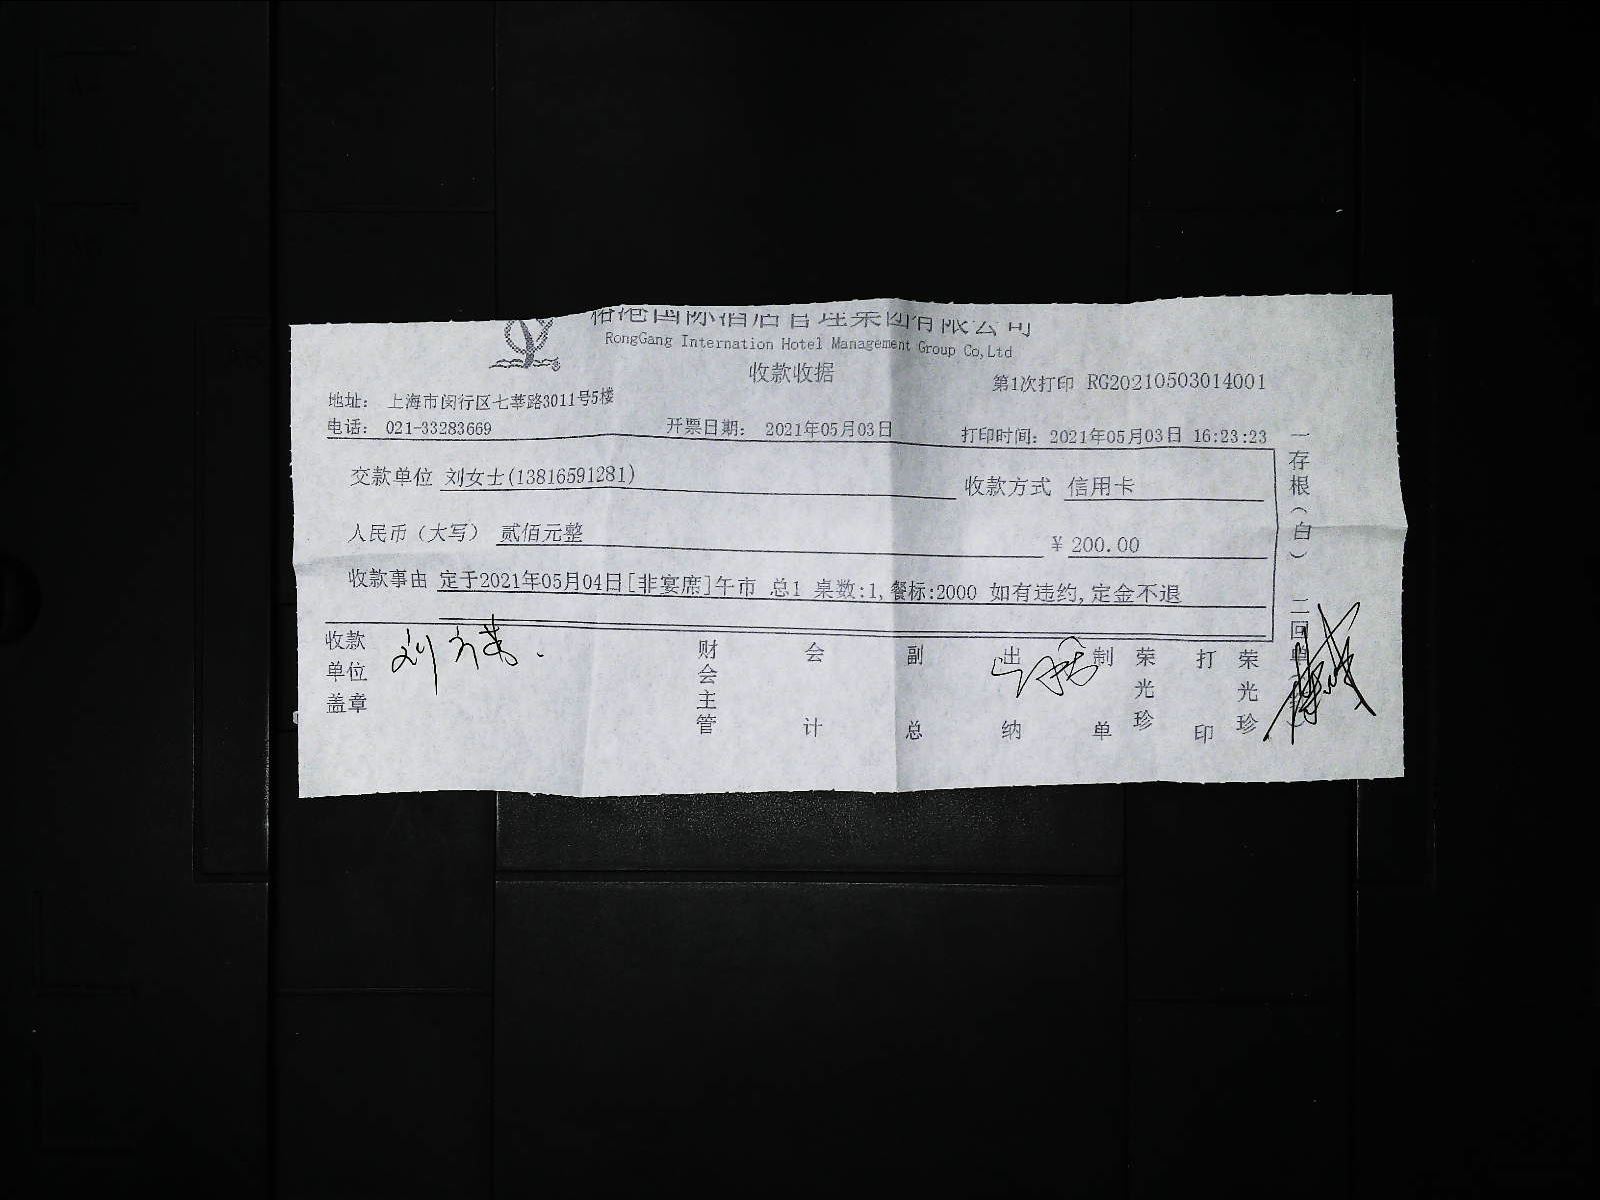 榕港国际酒店管理集团有限公司
RongGang Internation Hotel Management Group Co,Ltd
收款收据
第1次打印 RG20210503014001
地址： 上海市闵行区七莘路3011号5楼
电话： 021-33283669 开票日期： 2021年05月03日 打印时间：2021年05月03日 16:23:23
交款单位 刘女士(13816591281) 收款方式 信用卡
人民币（大写） 贰佰元整 ￥ 200.00
收款事由 定于2021年05月04日[非宴席]午市 总1 桌数:1,餐标:2000 如有违约,定金不退
收款单位盖章 财会主管 会计 副总 出纳 制单 荣光珍 打印 荣光珍
一存根（白） 二回单